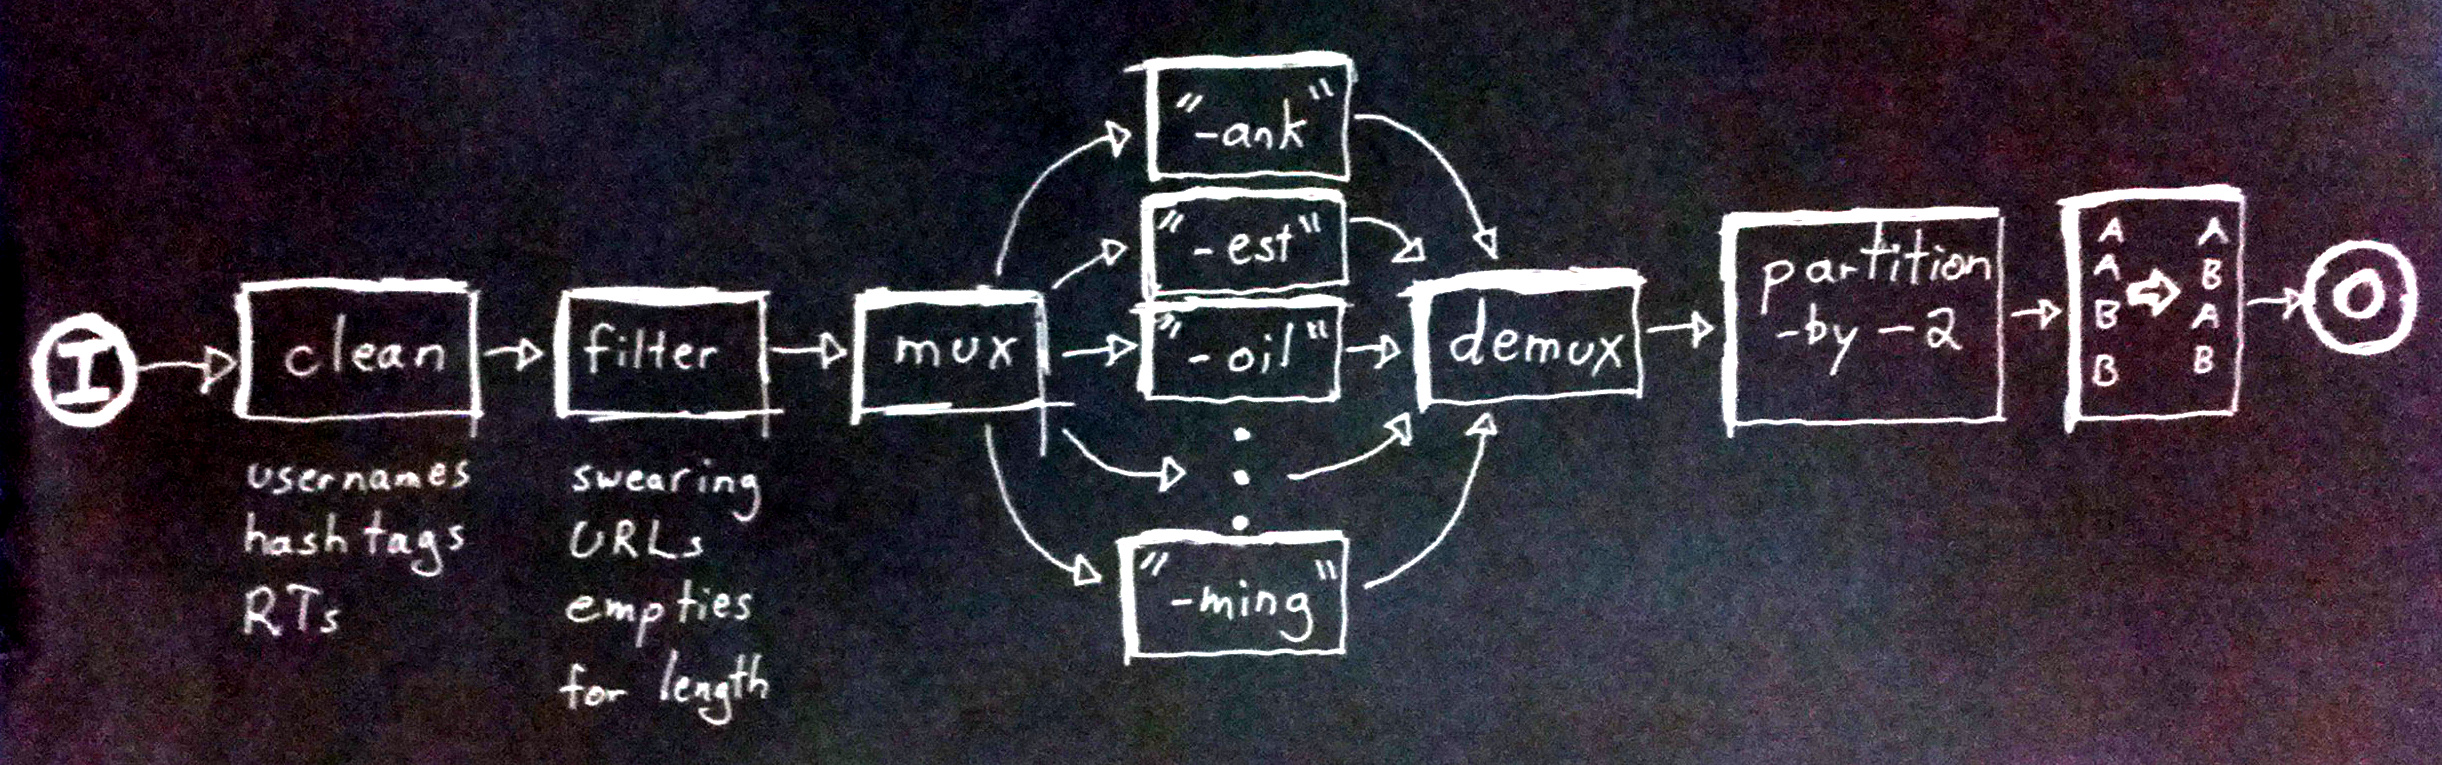 I
clean
usernames
hash tags
RTs
filter
swearing
URLs
empties
for length
mux
"-ank"
"-est"
"-oil"
"-ming"
demux
partition
-by-2
A A
A B
B A
B B
O